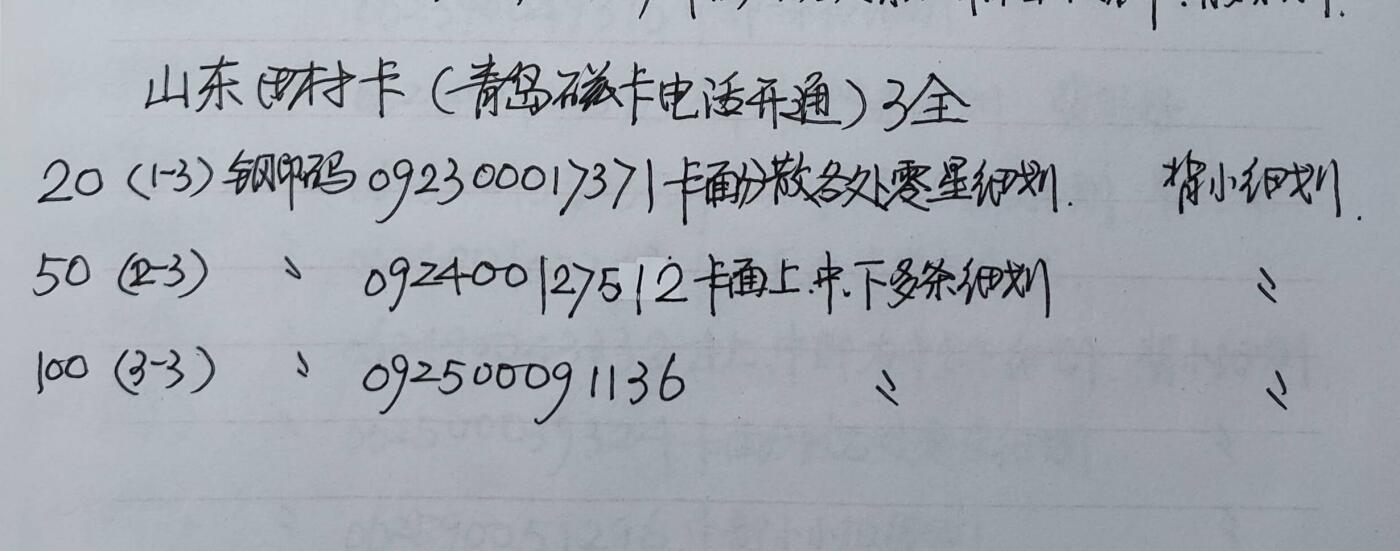 山东田村卡（青岛磁卡电话开通）3全
20（1-3）钢印码 092300017371 卡面分散各处零星细划. 背小细划.
50（2-3） 〃 092400127512 卡面上.中.下多条细划 〃
100（3-3） 〃 092500091136 〃 〃